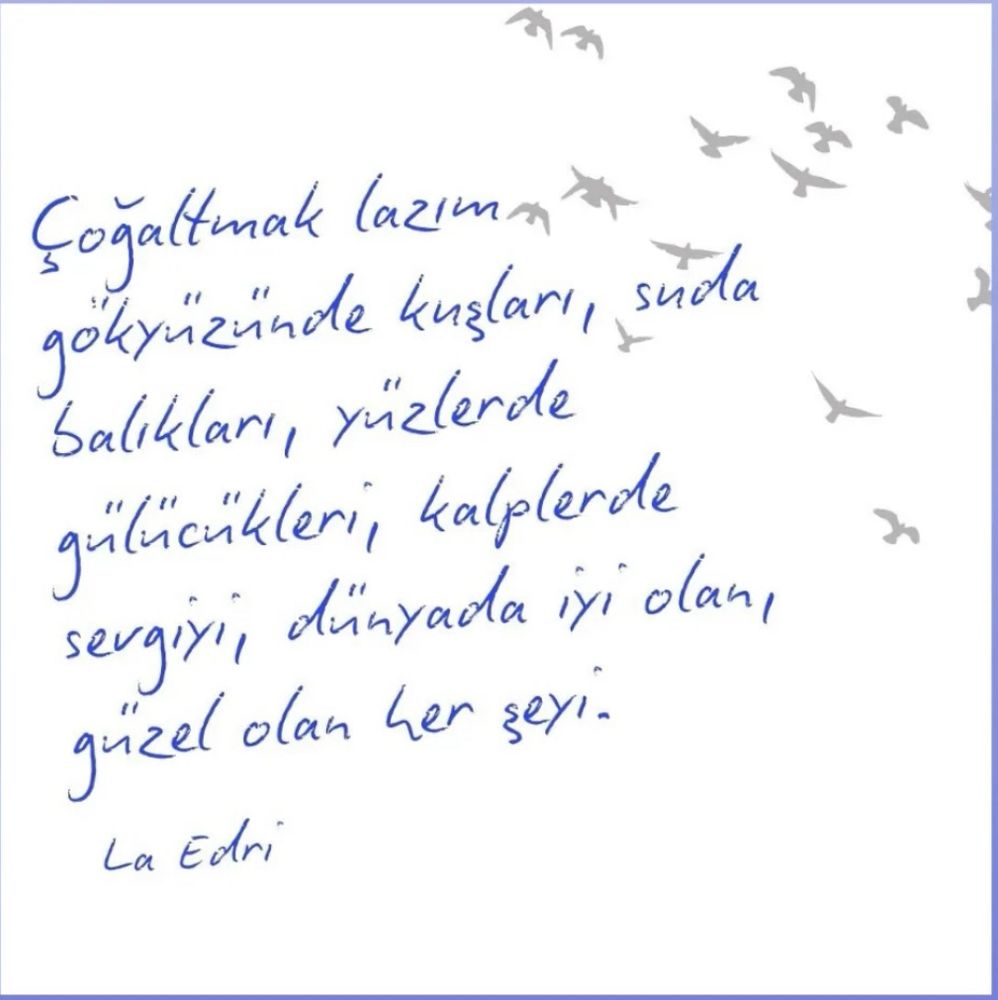 Çoğaltmak lazım
gökyüzünde kuşları, suda
balıkları, yüzlerde
gülücükleri, kalplerde
sevgiyi, dünyada iyi olan,
güzel olan her şeyi.
La Edri